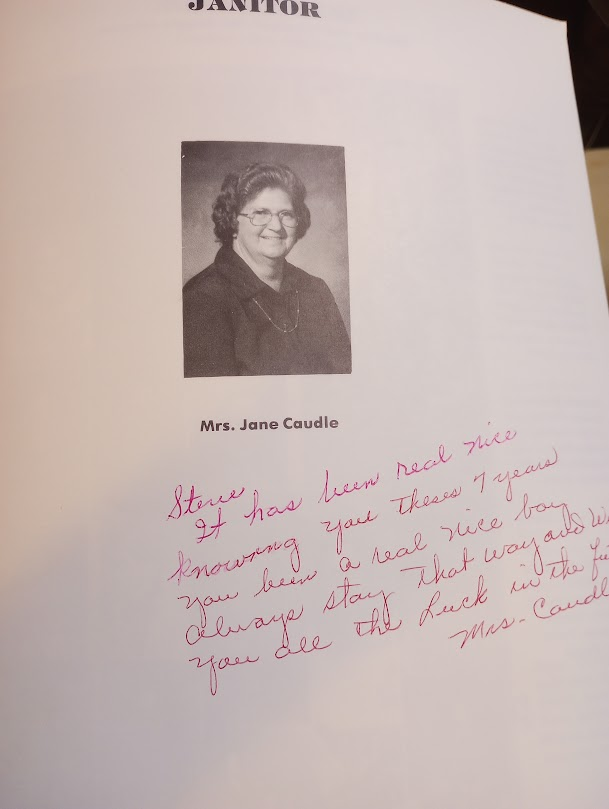 JANITOR
Mrs. Jane Caudle
Steve
It has been real nice
knowing you theses 7 years
you been a real nice boy
always stay that way and
you all the Luck in the
Mrs. Caudle